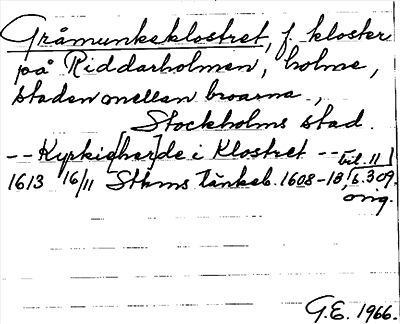 Gråmunkeklostret, f. kloster
på Riddarholmen, holme,
staden mellan broarna,
Stockholms stad.
-- Kyrkig[her]de i Klostret -- bil. 11
1613 16/11 Stkms tänkeb. 1608-18, s. 309.
orig.
G.E. 1966.